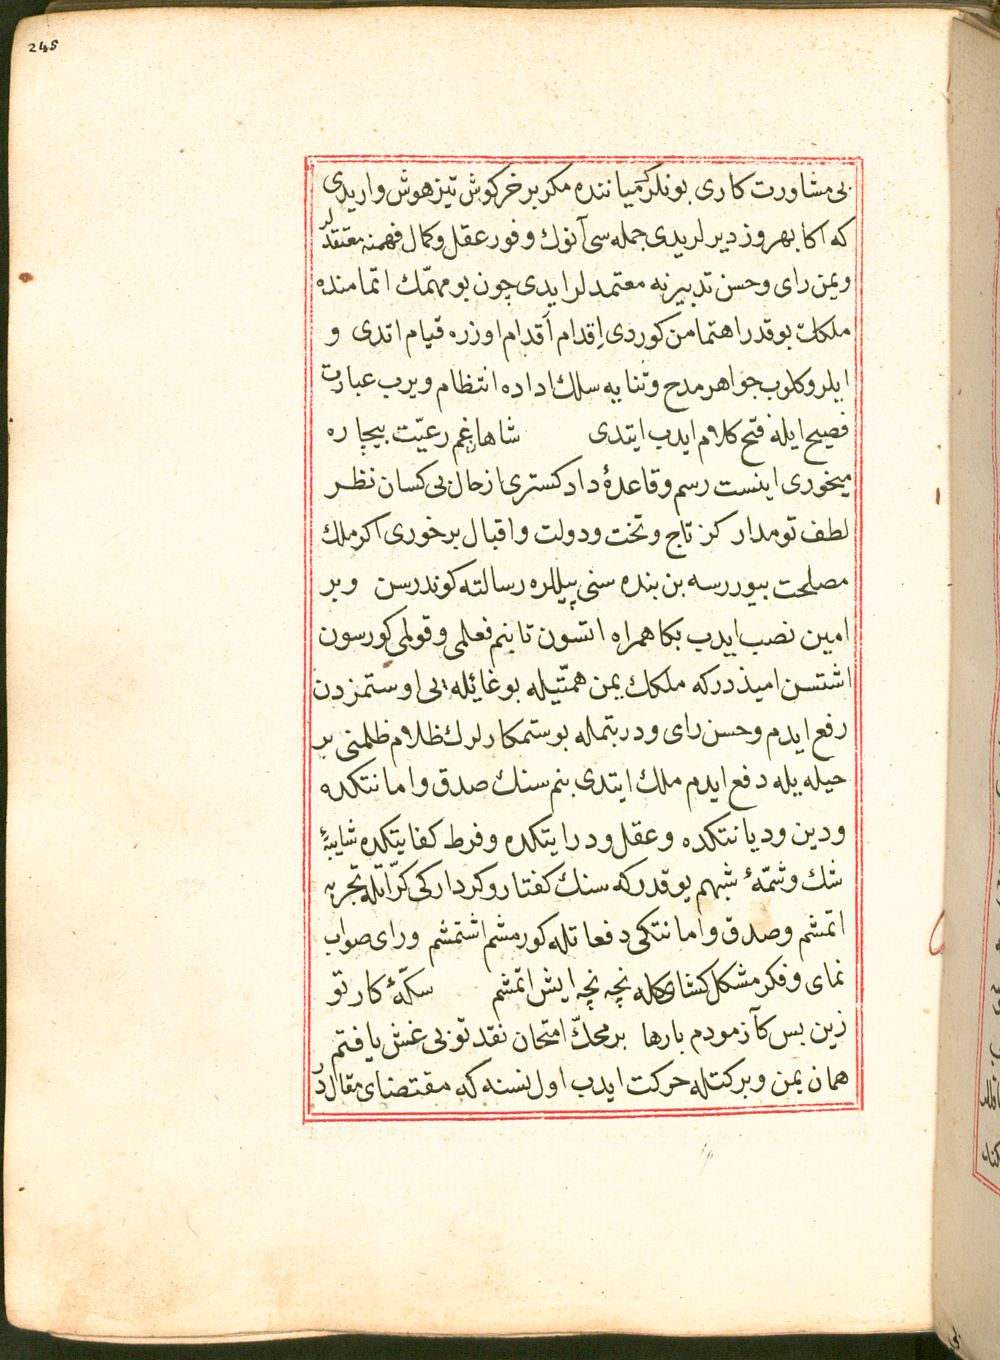 245
بی مشاورت کاری بونلرک میاننده مکر بر خرکوش تیز هوش وار یدی
که اکا بهروز دیرلر یدی جمله سی آنوك وفور عقل و کمال فهمنه معتقدلر
ویمن رای وحسن تدبیرنه معتمدلر ایدی چون بو مهمّك اتمامنده
ملکك بو قدر اهتمامن کوردی اِقدام اَقدام اوزره قیام اتدی و
ایلرو کلوب جواهر مدح وثنایه سلك اداده انتظام ویرب عبارت
فصیح ایله فتح کلام ایدب ایتدی شاها غم رعیّت بیچاره
میخوری اینست رسم وقاعدهٔ داد کستری از حال بی کسان نظر
لطف تو مدار کز تاج وتخت ودولت واقبال برخوری اکر ملك
مصلحت بیوررسه بن بنده سنی پیللره رسالته کوندرسن وبر
امین نصب ایدب بکا همراه اتسون تا بنم فعلمی وقولمی کورسون
اشتسن امیذدرکه ملکك یمن همتیله بو غائیله یی اوستمزدن
رفع ایدم وحسن رای ودربتمله بو ستمکارلرك ظلام ظلمنی بر
حیله یله دفع ایدم ملك ایتدی بنم سنك صدق وامانتکده
ودین ودیانتکده وعقل ودرایتکده وفرط کفایتکده شایبهٔ
شك وشمّهٔ شبهم یوقدرکه سنك کفتار وکردارکی کرّاتله تجربه
اتمشم وصدق وامانتکی دفعاتله کورمشم اشتمشم ورای صواب
نمای وفکر مشکل کشای کله نچه نچه ایش اتمشم سکّهٔ کار تو
زین بس کآزمودم بارها بر محكّ امتحان نقد تو بی غش یافتم
همان یمن وبرکتله حرکت ایدب اول نسنه که مقتضای مقالدر